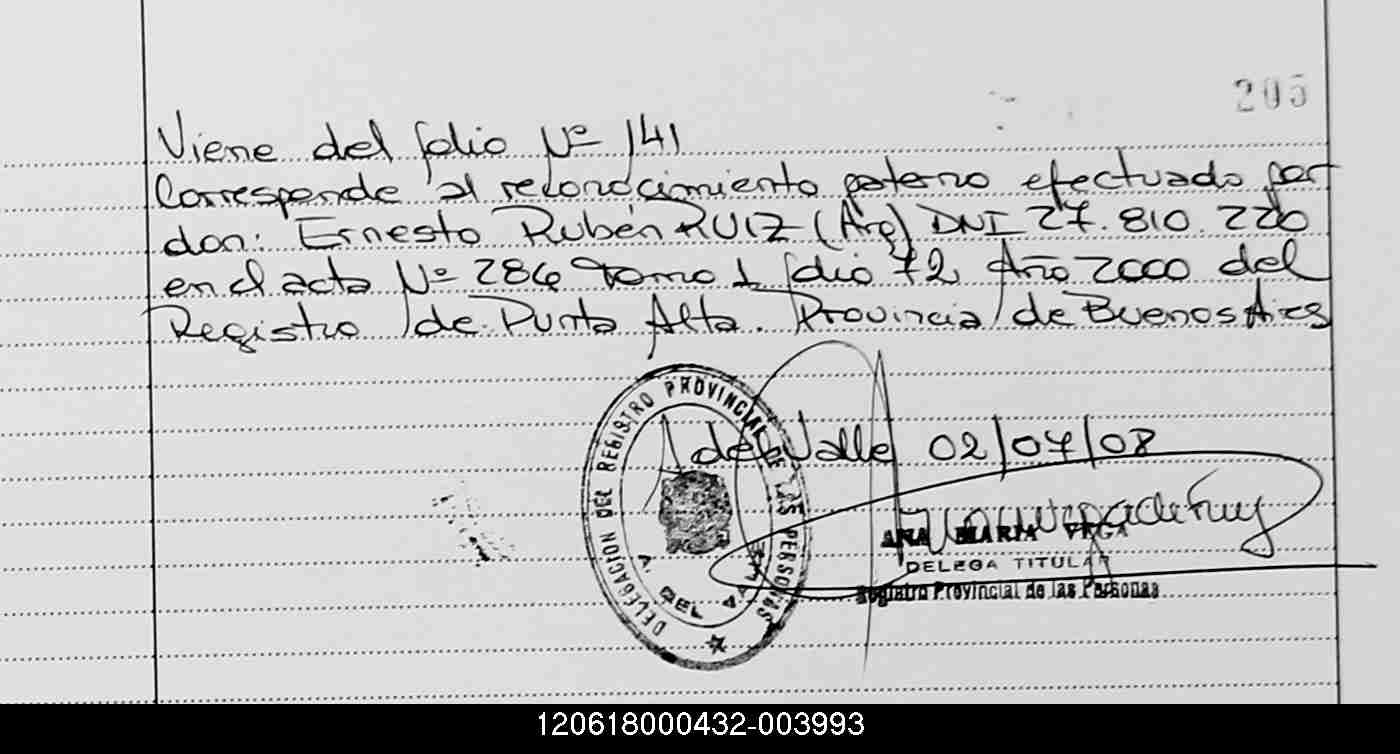 205
Viene del folio Nº 141
Corresponde al reconocimiento paterno efectuado por
don: Ernesto Rubén RUIZ (Arg) DNI 27.810.220
en el acta Nº 286 tomo 1 folio 72 Año 2000 del
Registro de Punta Alta. Provincia de Buenos Aires
A del Valle 02/07/08
DELEGACION DEL REGISTRO PROVINCIAL DE LAS PERSONAS
A. DEL VALLE
ANA MARIA VEGA
DELEGA TITULAR
Registro Provincial de las Personas
120618000432-003993